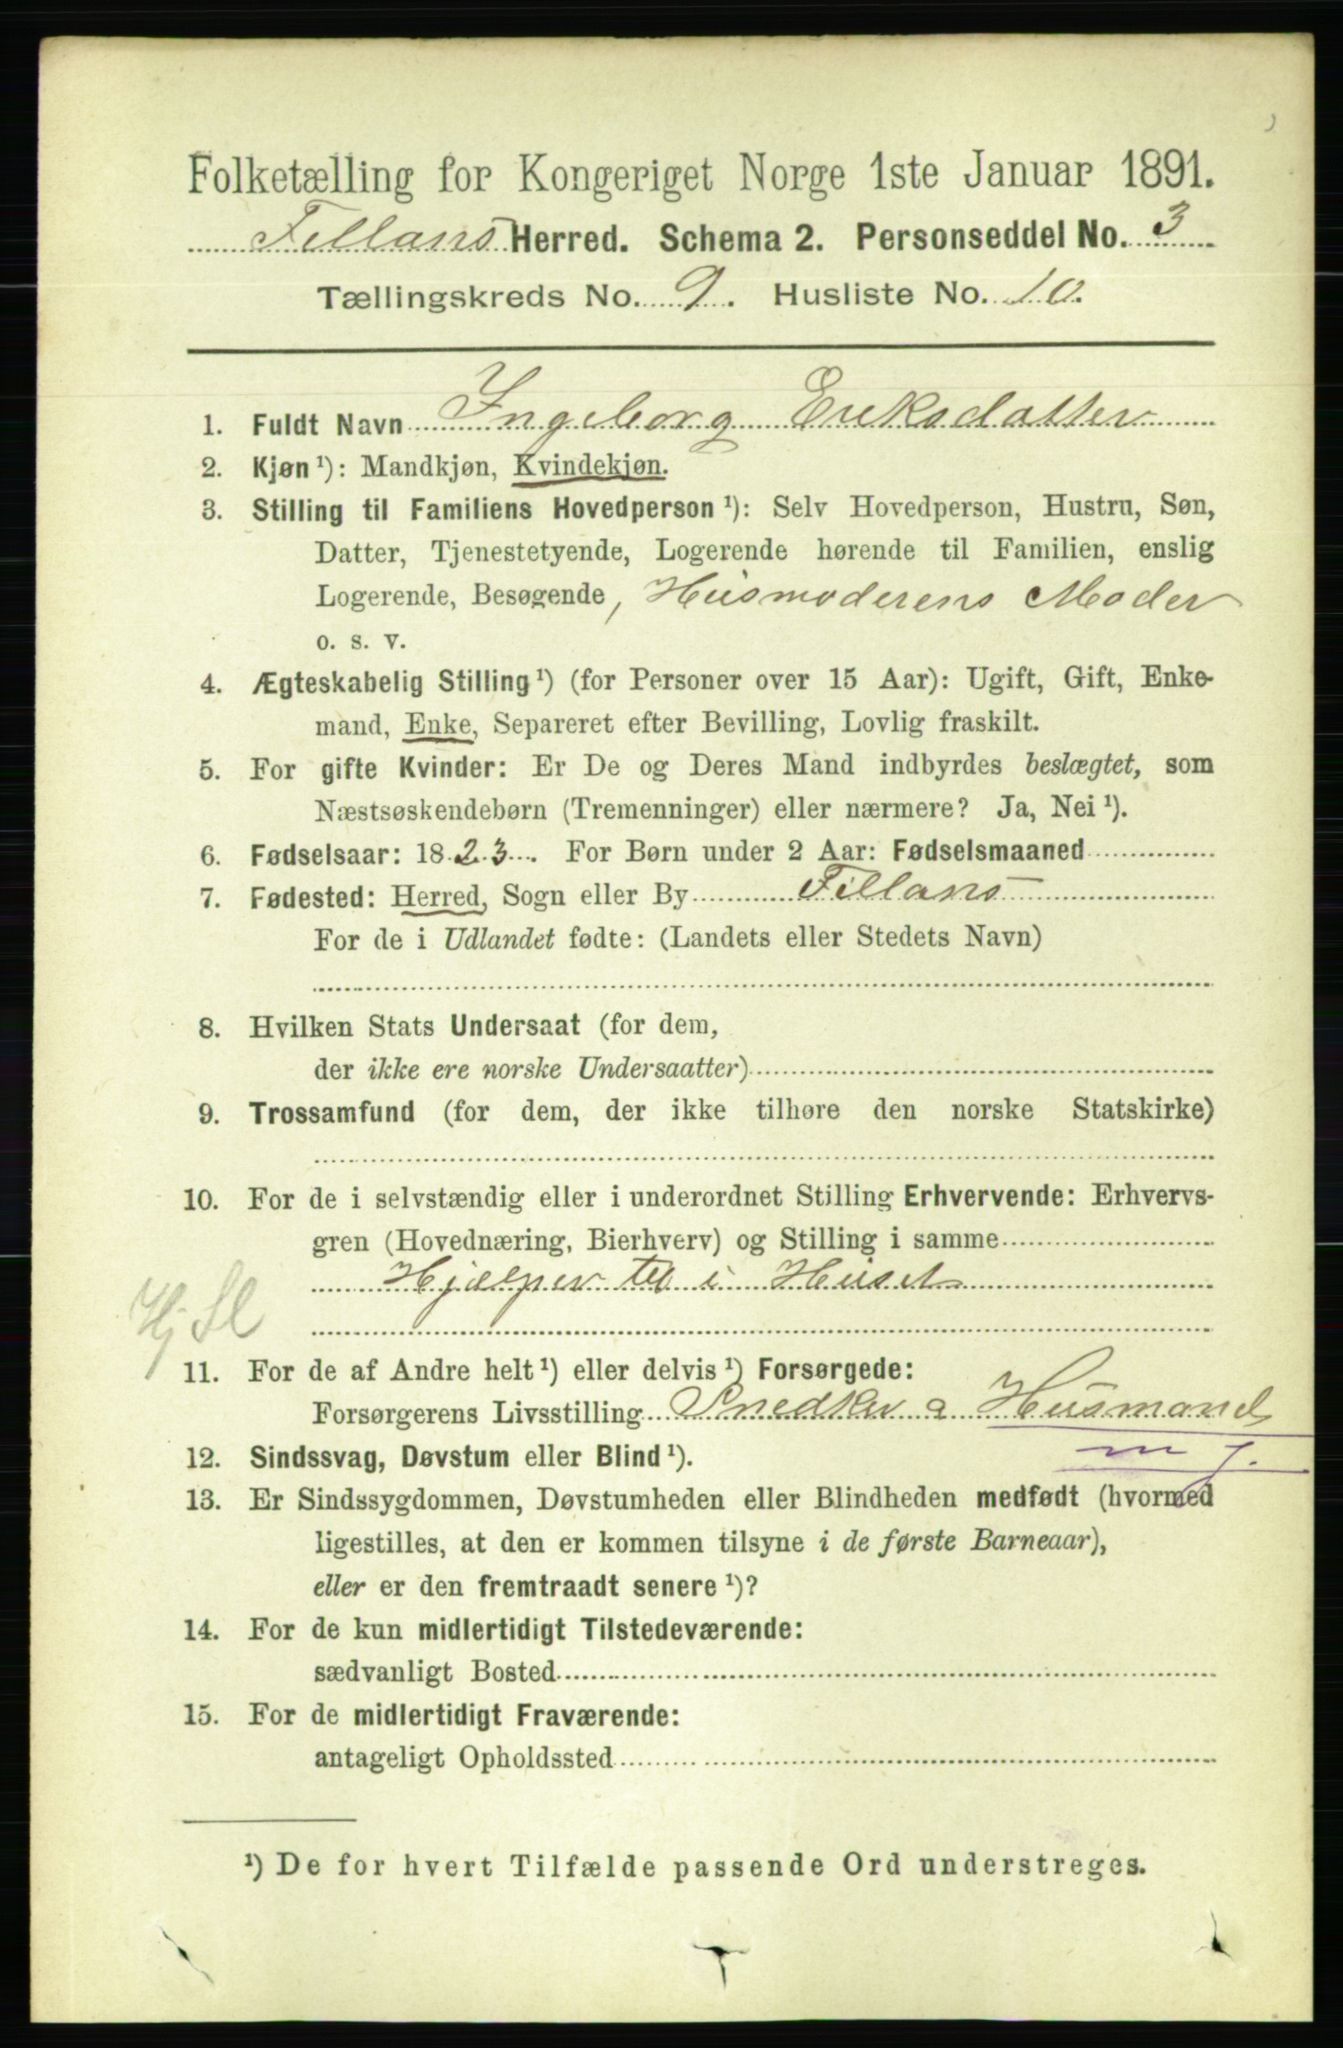 Folketælling for Kongeriget Norge 1ste Januar 1891.
Fillans Herred. Schema 2. Personseddel No. 3
Tællingskreds No. 9. Husliste No. 10.
1. Fuldt Navn Ingeborg Eriksdatter
2. Kjøn ¹): Mandkjøn, Kvindekjøn.
3. Stilling til Familiens Hovedperson ¹): Selv Hovedperson, Hustru, Søn,
Datter, Tjenestetyende, Logerende hørende til Familien, enslig
Logerende, Besøgende, Husmoderens Moder
o. s. v.
4. Ægteskabelig Stilling ¹) (for Personer over 15 Aar): Ugift, Gift, Enke-
mand, Enke, Separeret efter Bevilling, Lovlig fraskilt.
5. For gifte Kvinder: Er De og Deres Mand indbyrdes beslægtet, som
Næstsøskendebørn (Tremenninger) eller nærmere? Ja, Nei ¹).
6. Fødselsaar: 1823. For Børn under 2 Aar: Fødselsmaaned
7. Fødested: Herred, Sogn eller By Fillans
For de i Udlandet fødte: (Landets eller Stedets Navn)
8. Hvilken Stats Undersaat (for dem,
der ikke ere norske Undersaatter)
9. Trossamfund (for dem, der ikke tilhøre den norske Statskirke)
10. For de i selvstændig eller i underordnet Stilling Erhvervende: Erhvervs-
gren (Hovednæring, Bierhverv) og Stilling i samme
Hjælper til i Huset
Hj Sl
11. For de af Andre helt ¹) eller delvis ¹) Forsørgede:
Forsørgerens Livsstilling Snedker & Husmand
m j.
12. Sindssvag, Døvstum eller Blind ¹).
13. Er Sindssygdommen, Døvstumheden eller Blindheden medfødt (hvormed
ligestilles, at den er kommen tilsyne i de første Barneaar),
eller er den fremtraadt senere ¹)?
14. For de kun midlertidigt Tilstedeværende:
sædvanligt Bosted
15. For de midlertidigt Fraværende:
antageligt Opholdssted
¹) De for hvert Tilfælde passende Ord understreges.